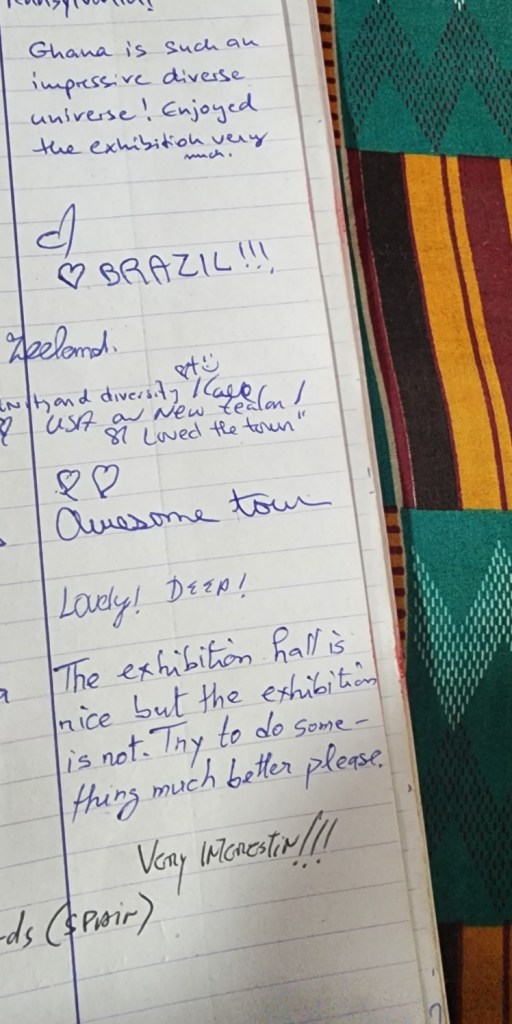 Ghana is such an
impressive diverse
universe! Enjoyed
the exhibition very
much.
BRAZIL!!!
Zeeland.
and diversity
USA New
Loved the town"
Awesome tour
Lovely! DEEP!
The exhibition hall is
nice but the exhibition
is not. Try to do some-
thing much better please.
Very INTERESTIN!!!
ds (SPAIN)